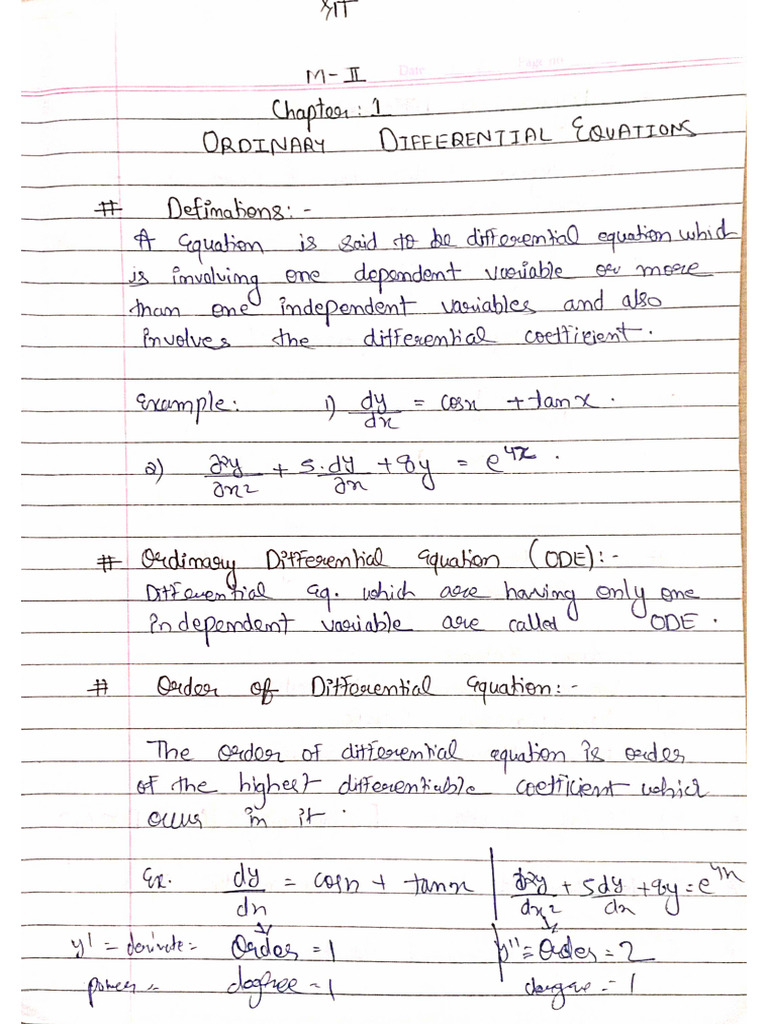 M-II
Date
Page no
Chapter: 1
ORDINARY DIFFERENTIAL EQUATIONS
# Definations:-
A Equation is said to be differential equation which
is involving one dependent variable or more
than one independent variables and also
involves the differential coefficient.
Example: 1) dy/dx = cosx + tanx.
2) ∂2y/∂x2 + 5.dy/∂x + 8y = e^4x.
# Ordinary Differential Equation (ODE):-
Differential Eq. which are having only one
independent variable are called ODE.
# Order of Differential Equation:-
The order of differential equation is order
of the highest differentiable coefficient which
occurs in it.
Ex. dy/dx = cosx + tanx | d2y/dx2 + 5dy/dx + 8y = e^4x
y' = derivate = Order = 1 y'' = Order = 2
power = degree = 1 degree = 1